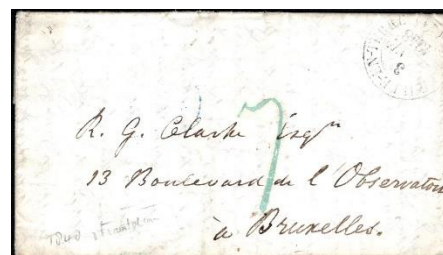 7
R. G. Clarke Esqre
13 Boulevard de l'Observatoire
à Bruxelles.